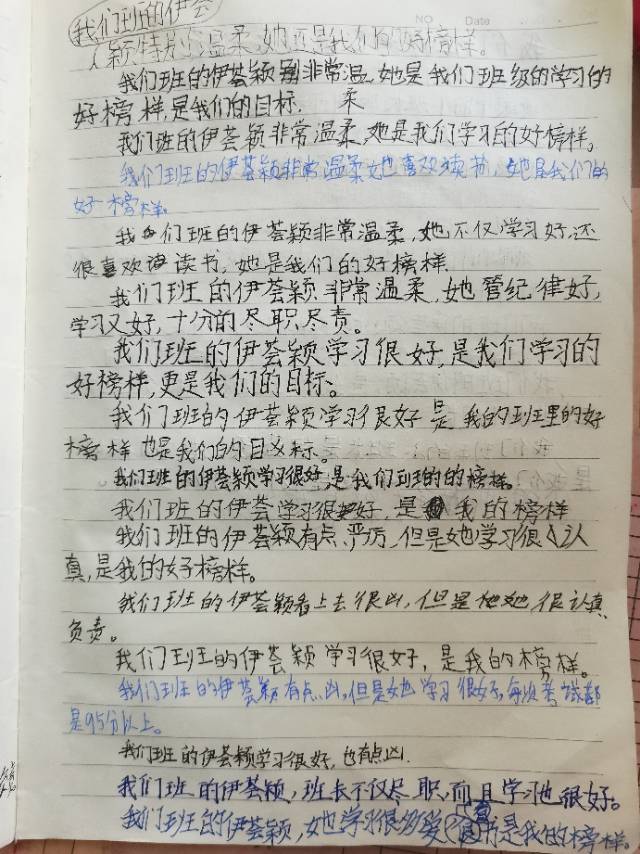 NO Date
我们班的伊荟
颖特别温柔,她还是我们的好榜样。
我们班的伊荟颖别非常温,她是我们班级的学习的
好榜样,是我们的目标. 柔
我们班的伊荟颖非常温柔,她是我们学习的好榜样。
我们班的伊荟颖非常温柔她喜欢读书,她是我们的
好榜样。
我们班的伊荟颖非常温柔,她不仅学习好,还
很喜欢读书,她是我们的好榜样
我们班的伊荟颖非常温柔,她管纪律好,
学习又好,十分的尽职尽责。
我们班的伊荟颖学习很好,是我们学习的
好榜样,更是我们的目标。
我们班的伊荟颖学习很好是我的班里的好
榜样也是我们的目标。
我们班的伊荟颖学习很好是我们班的的榜样。
我们班的伊荟学习很好,是我的榜样
我们班的伊荟颖有点严厉,但是她学习很认
真,是我的好榜样。
我们班的伊荟颖看上去很凶,但是她很认真
负责。
我们班的伊荟颖学习很好,是我的榜样。
我们班的伊荟颖有点凶,但是她学习很好,每次考试都
是95分以上。
我们班的伊荟颖学习很好,也有点凶.
我们班的伊荟颖,班长不仅尽职,而且学习也很好。
我们班的伊荟颖,她学习很爱书是我的榜样。